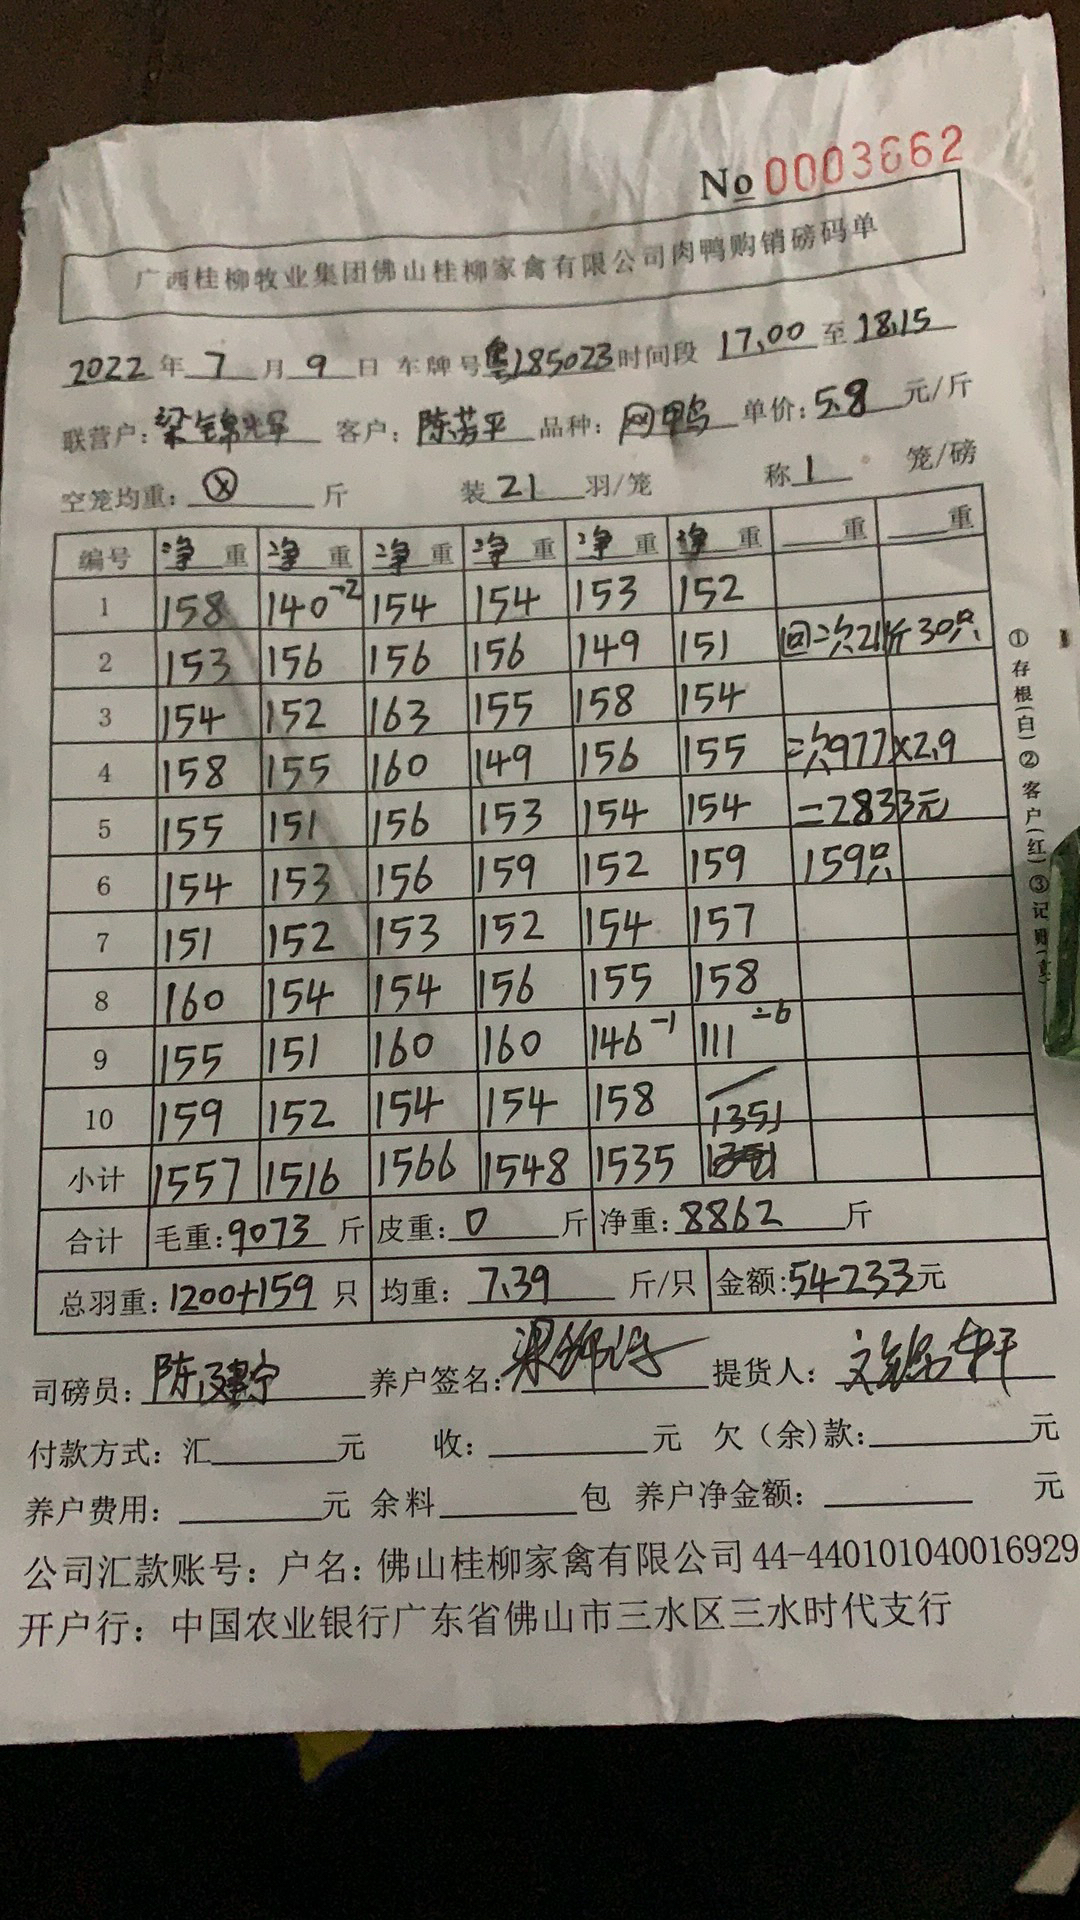 No 0003662
广西桂柳牧业集团佛山桂柳家禽有限公司肉鸭购销磅码单
2022 年 7 月 9 日 车牌号 粤185023 时间段 17,00 至 18,15
联营户: 梁锦辉 客户: 陈芳平 品种: 网鸭 单价: 5.8 元/斤
空笼均重: ⓧ 斤 装 21 羽/笼 称 1 笼/磅
编号 净重 净重 净重 净重 净重 净重 重 重
1 158 140-2 154 154 153 152
2 153 156 156 156 149 151 回二次211斤30只
3 154 152 163 155 158 154
4 158 155 160 149 156 155 二次977×2.9
5 155 151 156 153 154 154 =2833元
6 154 153 156 159 152 159 159只
7 151 152 153 152 154 157
8 160 154 154 156 155 158
9 155 151 160 160 146-1 111-6
10 159 152 154 154 158
1351
小计 1557 1516 1566 1548 1535
合计 毛重: 9073 斤 皮重: 0 斤 净重: 8862 斤
总羽重: 1200+159 只 均重: 7.39 斤/只 金额: 54233元
司磅员: 陈建宁 养户签名: 提货人:
付款方式: 汇 元 收: 元 欠(余)款: 元
养户费用: 元 余料 包 养户净金额: 元
公司汇款账号: 户名: 佛山桂柳家禽有限公司 44-440101040016929
开户行: 中国农业银行广东省佛山市三水区三水时代支行
①存根(白)②客户(红)③记账(黄)